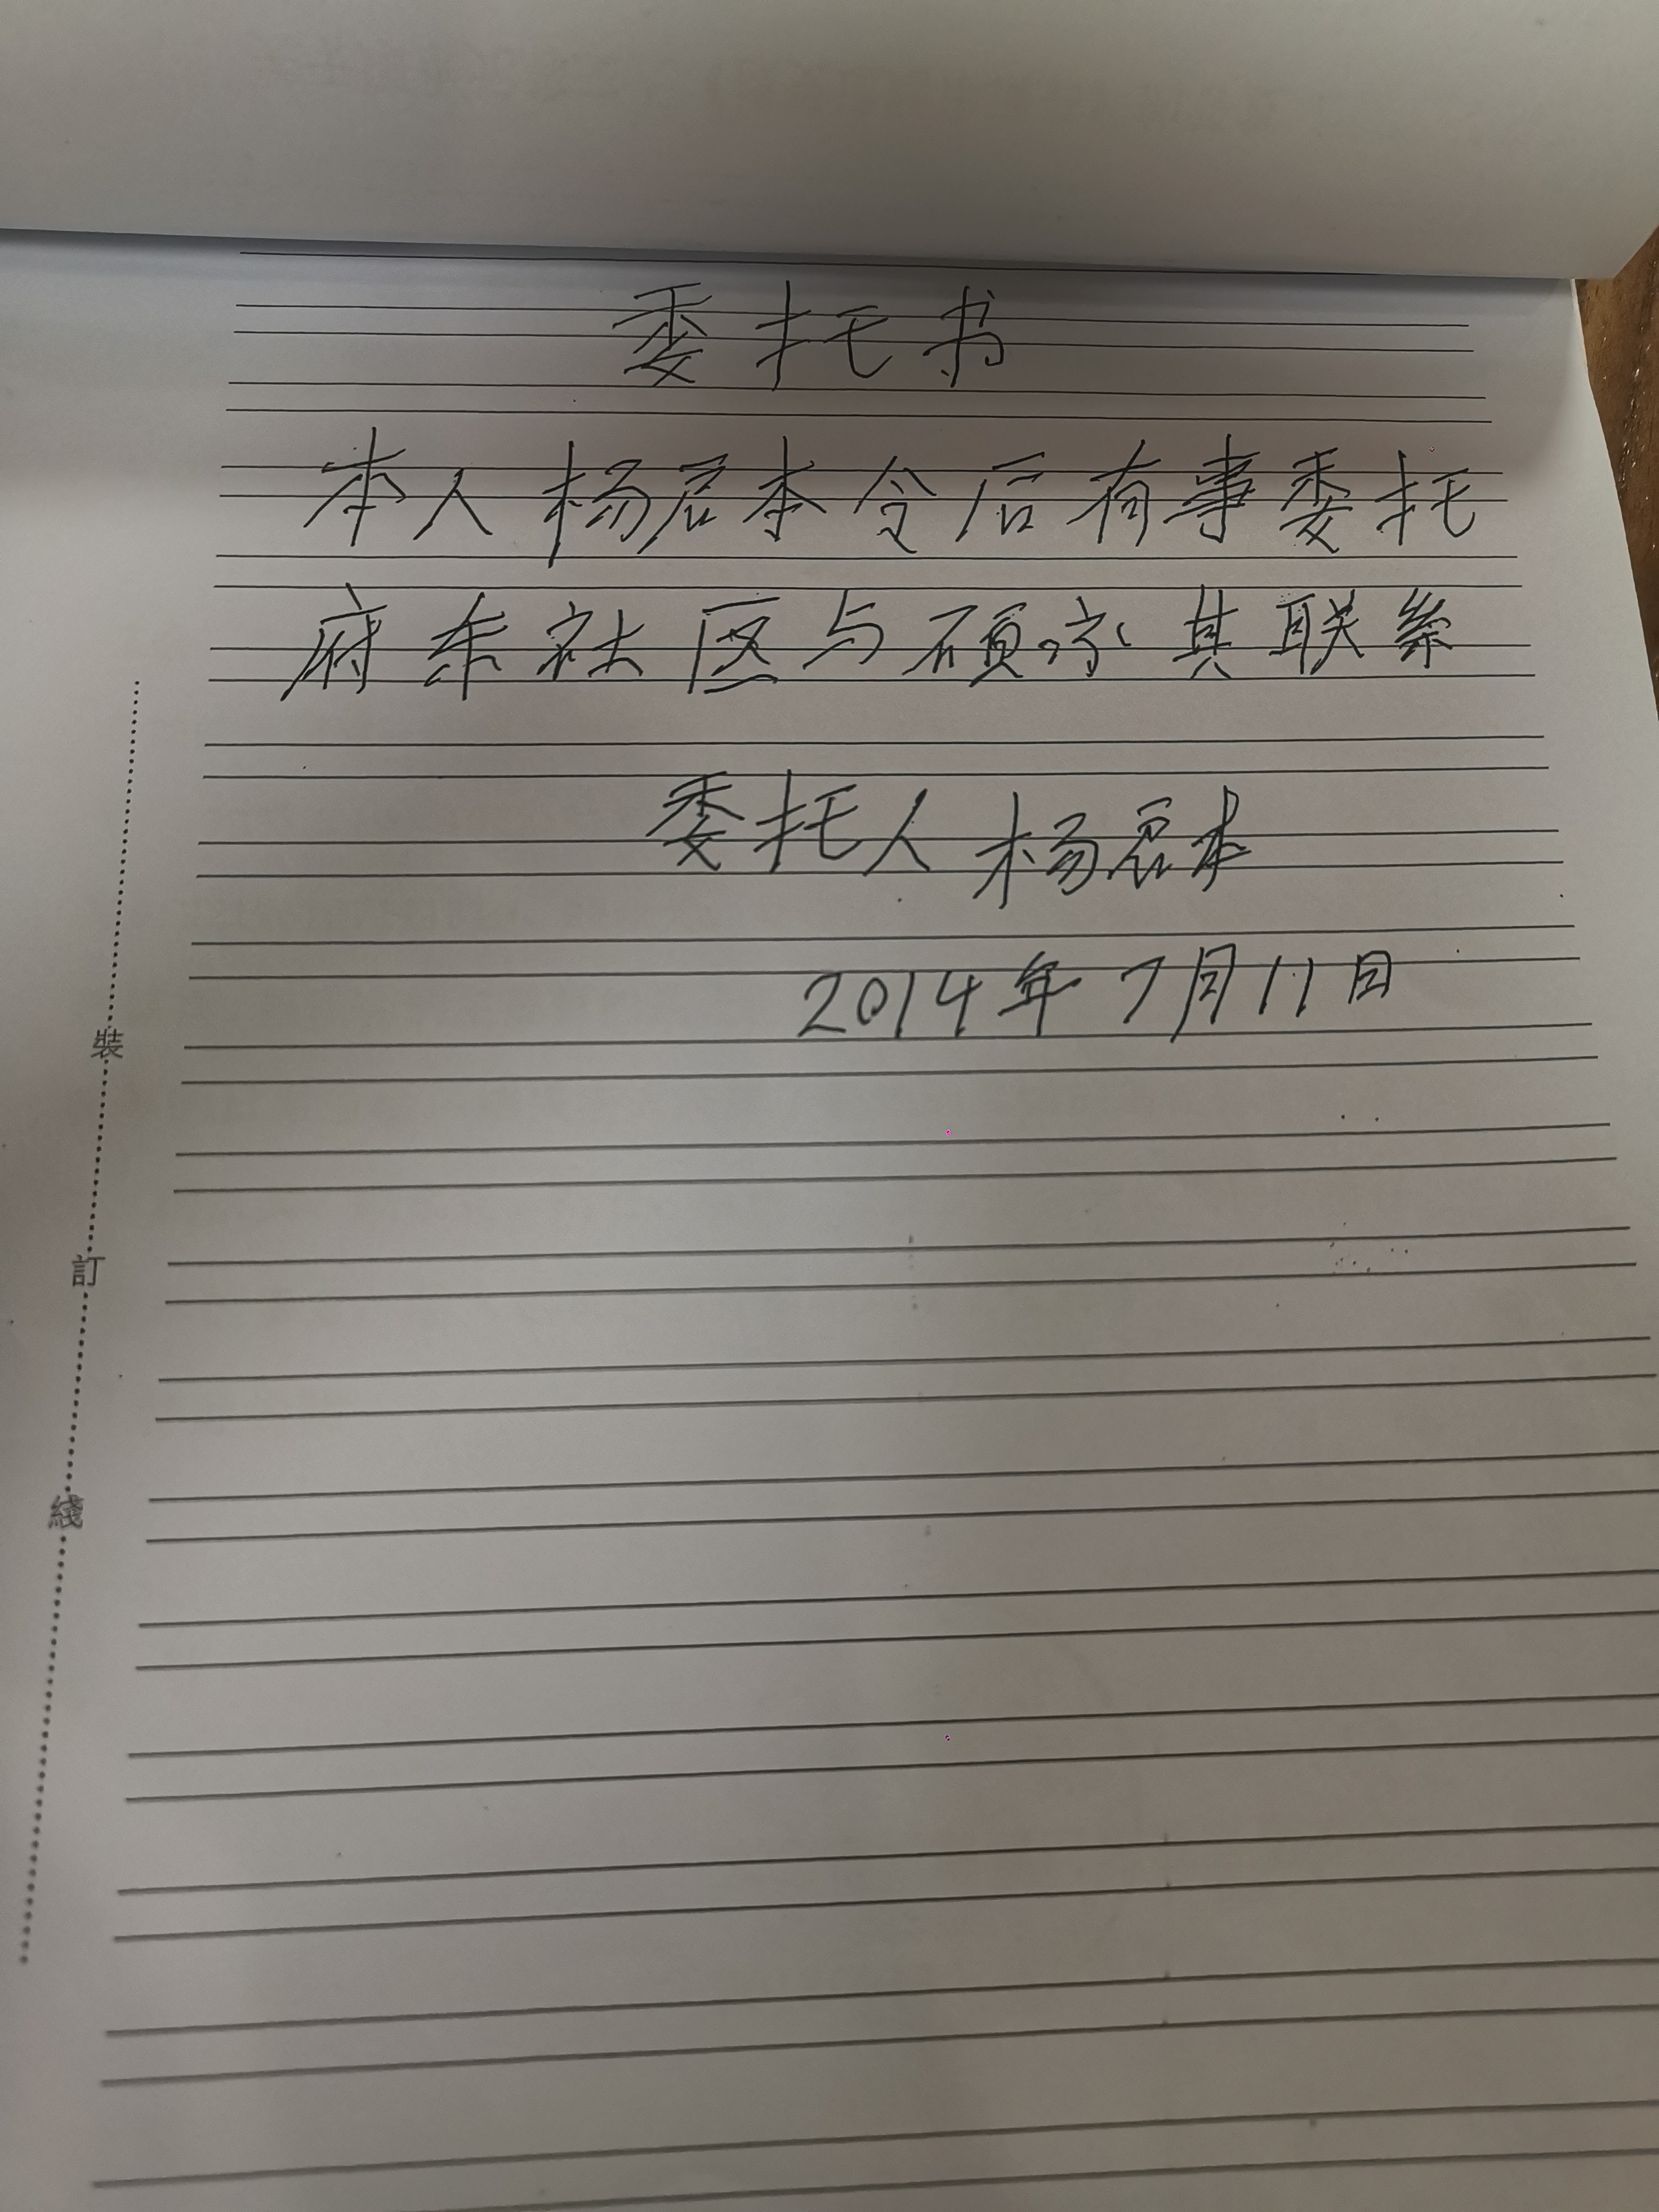 委托书
本人杨启本令后有事委托
府东社区与硕 其联系
委托人 杨启本
2014年7月11日
裝
訂
綫